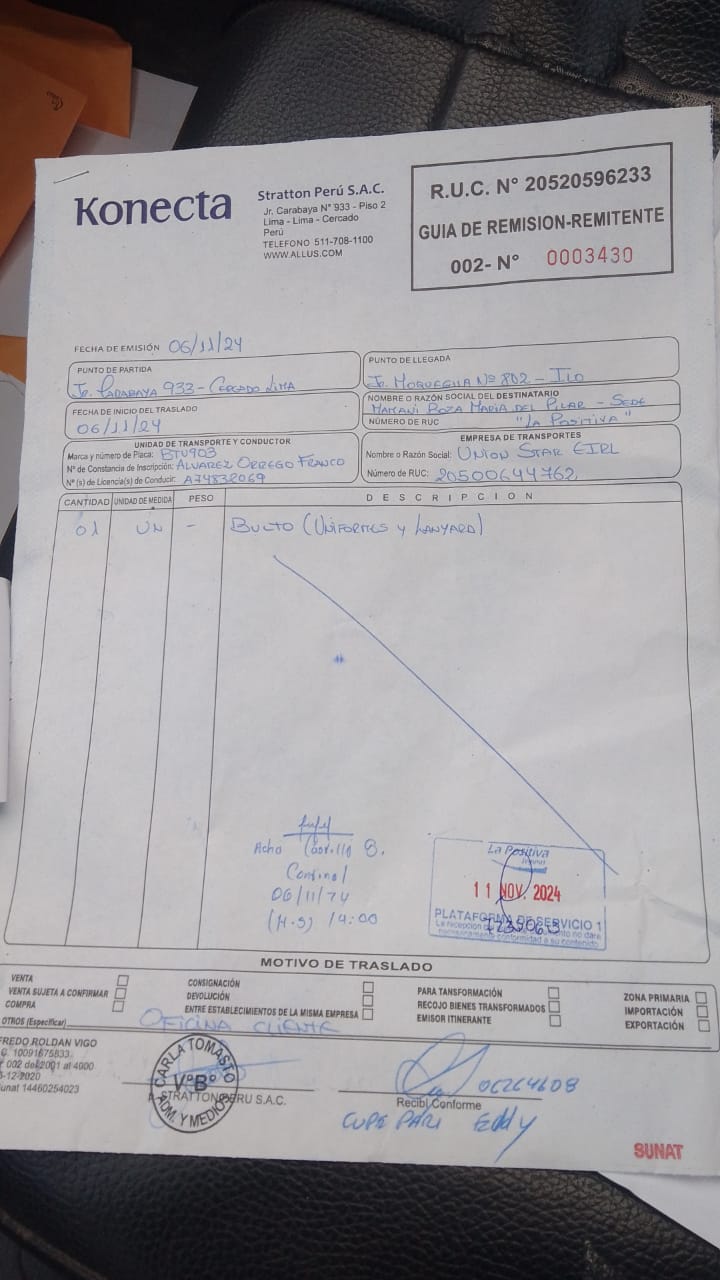 Konecta
Stratton Perú S.A.C.
Jr. Carabaya N° 933 - Piso 2
Lima - Lima - Cercado
Perú
TELEFONO 511-708-1100
WWW.ALLUS.COM
R.U.C. N° 20520596233
GUIA DE REMISION-REMITENTE
002- N° 0003430
FECHA DE EMISIÓN 06/11/24
PUNTO DE PARTIDA
Jr. Carabaya 933 - Cercado Lima
PUNTO DE LLEGADA
Jr. Moquegua N° 802 - Ilo
FECHA DE INICIO DEL TRASLADO
06/11/24
NOMBRE O RAZÓN SOCIAL DEL DESTINATARIO
Mamani Poza Maria del Pilar - Sede
NÚMERO DE RUC "La Positiva"
UNIDAD DE TRANSPORTE Y CONDUCTOR
Marca y número de Placa: BTU903
N° de Constancia de Inscripción: Alvarez Orrego Franco
N° (s) de Licencia(s) de Conducir: A74832069
EMPRESA DE TRANSPORTES
Nombre o Razón Social: Union Star EIRL
Número de RUC: 20500644762
CANTIDAD UNIDAD DE MEDIDA PESO DESCRIPCION
01 UN - Bulto (Uniformes y Lanyard)
06/11/24
(H.S) 14:00
La Positiva
11 NOV. 2024
PLATAFORMA DE SERVICIO 1
La recepcion no dare
conformidad a su contenido
MOTIVO DE TRASLADO
VENTA
VENTA SUJETA A CONFIRMAR
COMPRA
OTROS (Especificar) Oficina Cliente
CONSIGNACIÓN
DEVOLUCIÓN
ENTRE ESTABLECIMIENTOS DE LA MISMA EMPRESA
PARA TANSFORMACIÓN
RECOJO BIENES TRANSFORMADOS
EMISOR ITINERANTE
ZONA PRIMARIA
IMPORTACIÓN
EXPORTACIÓN
FREDO ROLDAN VIGO
10091675833
002 del 2001 al 4000
-12-2020
unat 14460254023
CARLA TOMASTO
V°B°
ADM. Y MEDIOS
STRATTON PERU S.A.C.
Recibí Conforme
Cupe Pari Eddy
SUNAT